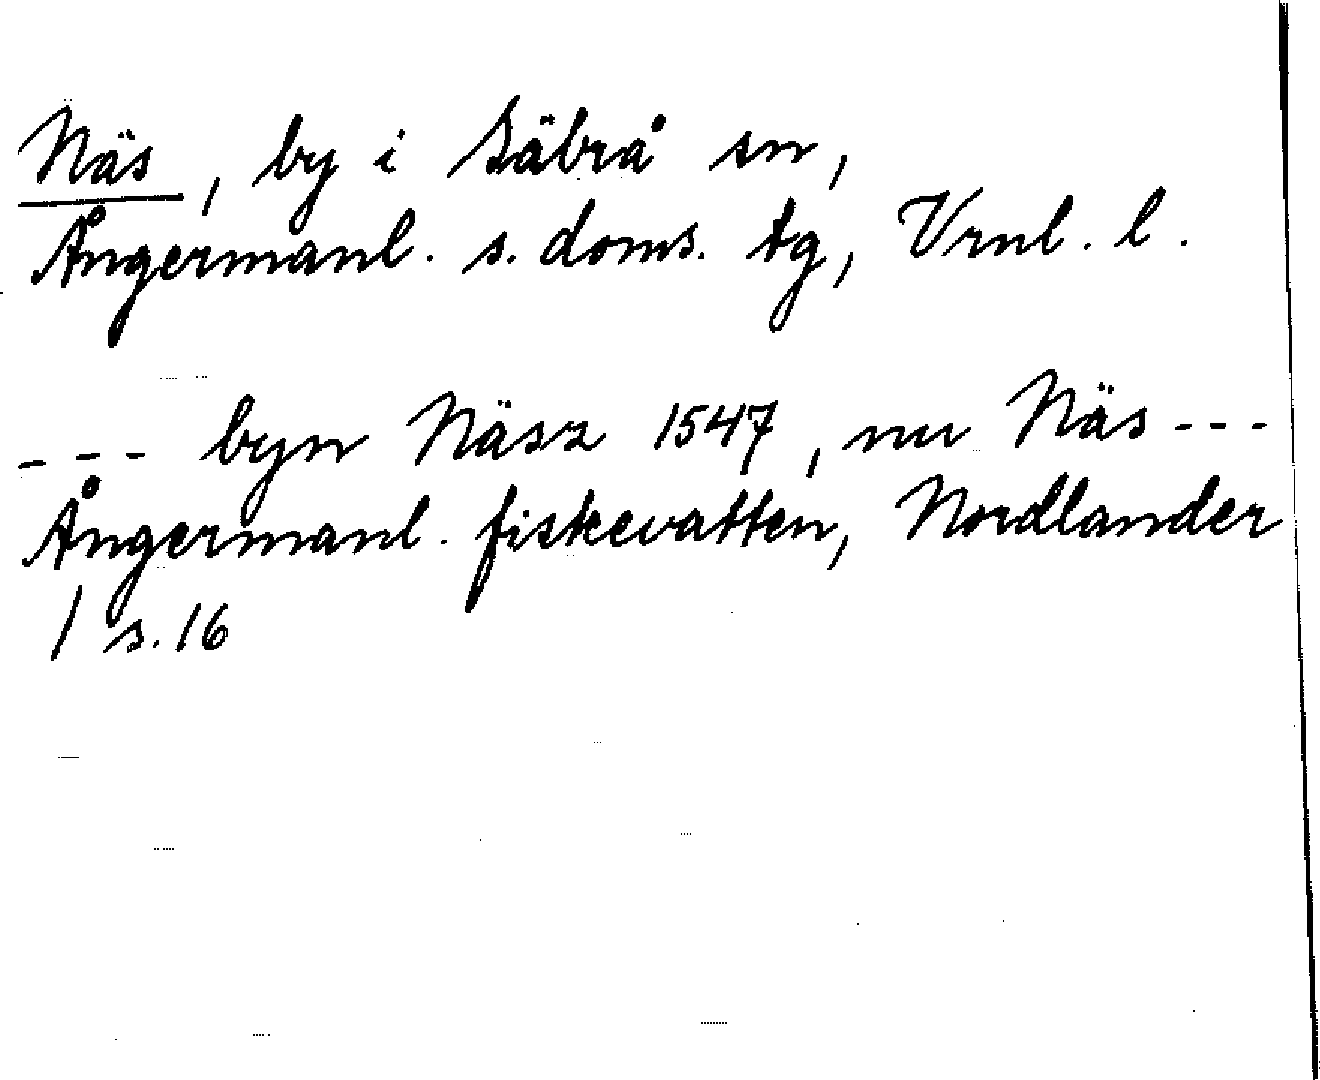 Näs, by i Säbrå sn,
Ångermanl. s. doms. tg, Vrnl. l.
--- byn Näsz 1547, nu Näs ---
Ångermanl. fiskevatten, Nordlander
1 s. 16